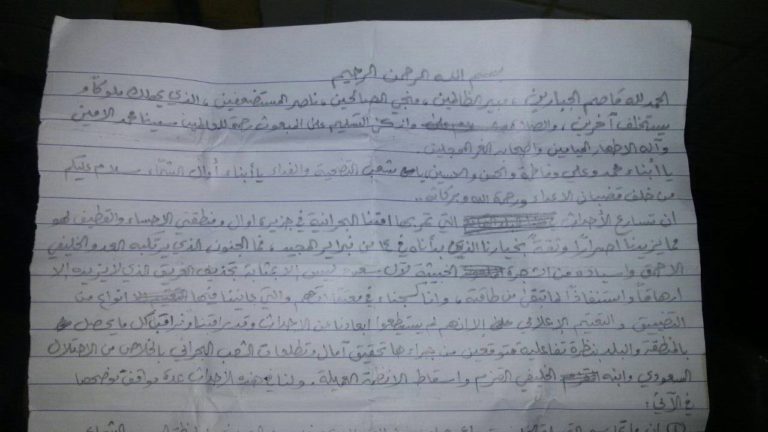 بسم الله الرحمن الرحيم
الحمد لله قاصم الجبارين، مبير الظالمين، منجي الصالحين، ناصر المستضعفين، الذي يهلك ملوكاً و
يستخلف آخرين، والصلاة وازكى التسليم على المبعوث رحمة للعالمين سيدنا محمد الامين
وآله الاطهار الميامين وأصحابه الغر المحجلين.
يا أبناء محمد وعلي وفاطمة والحسن والحسين يا شعب التضحية والفداء يا أبناء أوال الشمّاء سلام عليكم
من خلف قضبان الاعداء ورحمة الله وبركاته..
ان تسارع الأحداث التي تمر بها امتنا البحرانية في جزيرة اوال ومنطقتي الاحساء والقطيف لهو
مما يزيدنا اصراراً وثقة بخيارنا الذي بدأناه في ١٤ من فبراير المجيد، فما الجنون الذي يرتكبه العدو الخليفي
الاحمق واسياده من الشجرة الخبيثة ليس الا بمثابة تجديف الغريق الذي لا يزيده إلا
ارهاقاً واستنفاذاً لما تبقى من طاقته، واننا كسجناء في معتقلاتهم والتي عانينا فيها انواع من
التضييق والتعتيم الإعلامي إلا انهم لم يستطيعوا ابعادنا عن الاحداث وقد راقبنا ونراقب كل ما يحصل
بالمنطقة والبلد بنظرة تفاعلية متوقعين من جرائها تحقيق آمال وتطلعات الشعب البحراني بالخلاص من الاحتلال
السعودي وابنه الخليفي القزم واسقاط الانظمة العميلة. ولنا في هذه الأحداث عدة مواقف نوضحها
في الآتي: